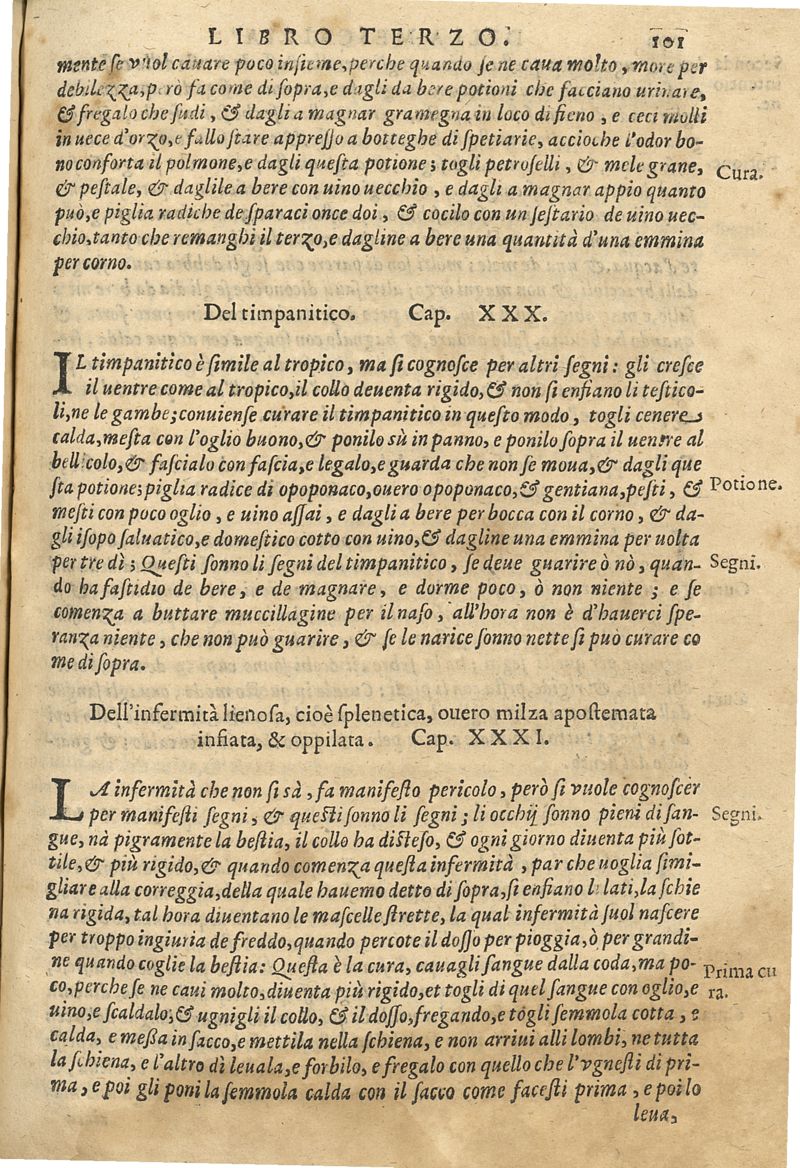 LIBRO TERZO. 101
mente se vuol cauare poco insieme, perche quando se ne caua molto, more per
debilezza, però fa come di sopra, e dagli da bere potioni che facciano urinare,
& fregalo che sudi, & dagli a magnar gramegna in loco di fieno, e ceci molli
in uece d'orzo, e fallo stare appresso a botteghe di spetiarie, accioche l'odor bo-
no conforta il polmone, e dagli questa potione; togli petroselli, & mele grane,
Cura.
& pestale, & daglile a bere con uino uecchio, e dagli a magnar appio quanto
può, e piglia radiche de sparaci once doi, & cocilo con un sestario de uino uec-
chio, tanto che remanghi il terzo, e dagline a bere una quantità d'una emmina
per corno.
Del timpanitico. Cap. XXX.
IL timpanitico è simile al tropico, ma si cognosce per altri segni: gli cresce
il uentre come al tropico, il collo deuenta rigido, & non si enfiano li testico-
li, ne le gambe; conuiense curare il timpanitico in questo modo, togli cenere
calda, mesta con l'oglio buono, & ponilo sù in panno, e ponilo sopra il uentre al
bellicolo, & fascialo con fascia, e legalo, e guarda che non se moua, & dagli que
sta potione; piglia radice di opoponaco, ouero opoponaco, & gentiana, pesti, &
Potione.
mesti con poco oglio, e uino assai, e dagli a bere per bocca con il corno, & da-
gli isopo saluatico, e domestico cotto con uino, & dagline una emmina per uolta
per tre dì; Questi sonno li segni del timpanitico, se deue guarire ò nò, quan-
Segni.
do ha fastidio de bere, e de magnare, e dorme poco, ò non niente; e se
comenza a buttare muccillagine per il naso, all'hora non è d'hauerci spe-
ranza niente, che non può guarire, & se le narice sonno nette si può curare co
me di sopra.
Dell'infermità lienosa, cioè splenetica, ouero milza apostemata
infiata, & oppilata. Cap. XXXI.
LA infermità che non si sà, fa manifesto pericolo, però si vuole cognoscer
per manifesti segni, & questi sonno li segni; li occhij sonno pieni di san-
Segni.
gue, nà pigramente la bestia, il collo ha disteso, & ogni giorno diuenta più sot-
tile, & più rigido, & quando comenza questa infermità, par che uoglia simi-
gliare alla correggia, della quale hauemo detto di sopra, si enfiano li lati, la schie
na rigida, tal hora diuentano le mascelle strette, la qual infermità suol nascere
per troppo ingiuria de freddo, quando percote il dosso per pioggia, ò per grandi-
ne quando coglie la bestia: Questa è la cura, cauagli sangue dalla coda, ma po-
Prima cu
co, perche se ne caui molto, diuenta più rigido, et togli di quel sangue con oglio, e
ra.
uino, e scaldalo; & ugnigli il collo, & il dosso, fregando, e togli semmola cotta, e
calda, e messa in sacco, e mettila nella schiena, e non arriui alli lombi, ne tutta
la schiena, e l'altro dì leuala, e forbilo, e fregalo con quello che l'vgnesti di pri-
ma, e poi gli poni la semmola calda con il sacco come facesti prima, e poi lo
leua,